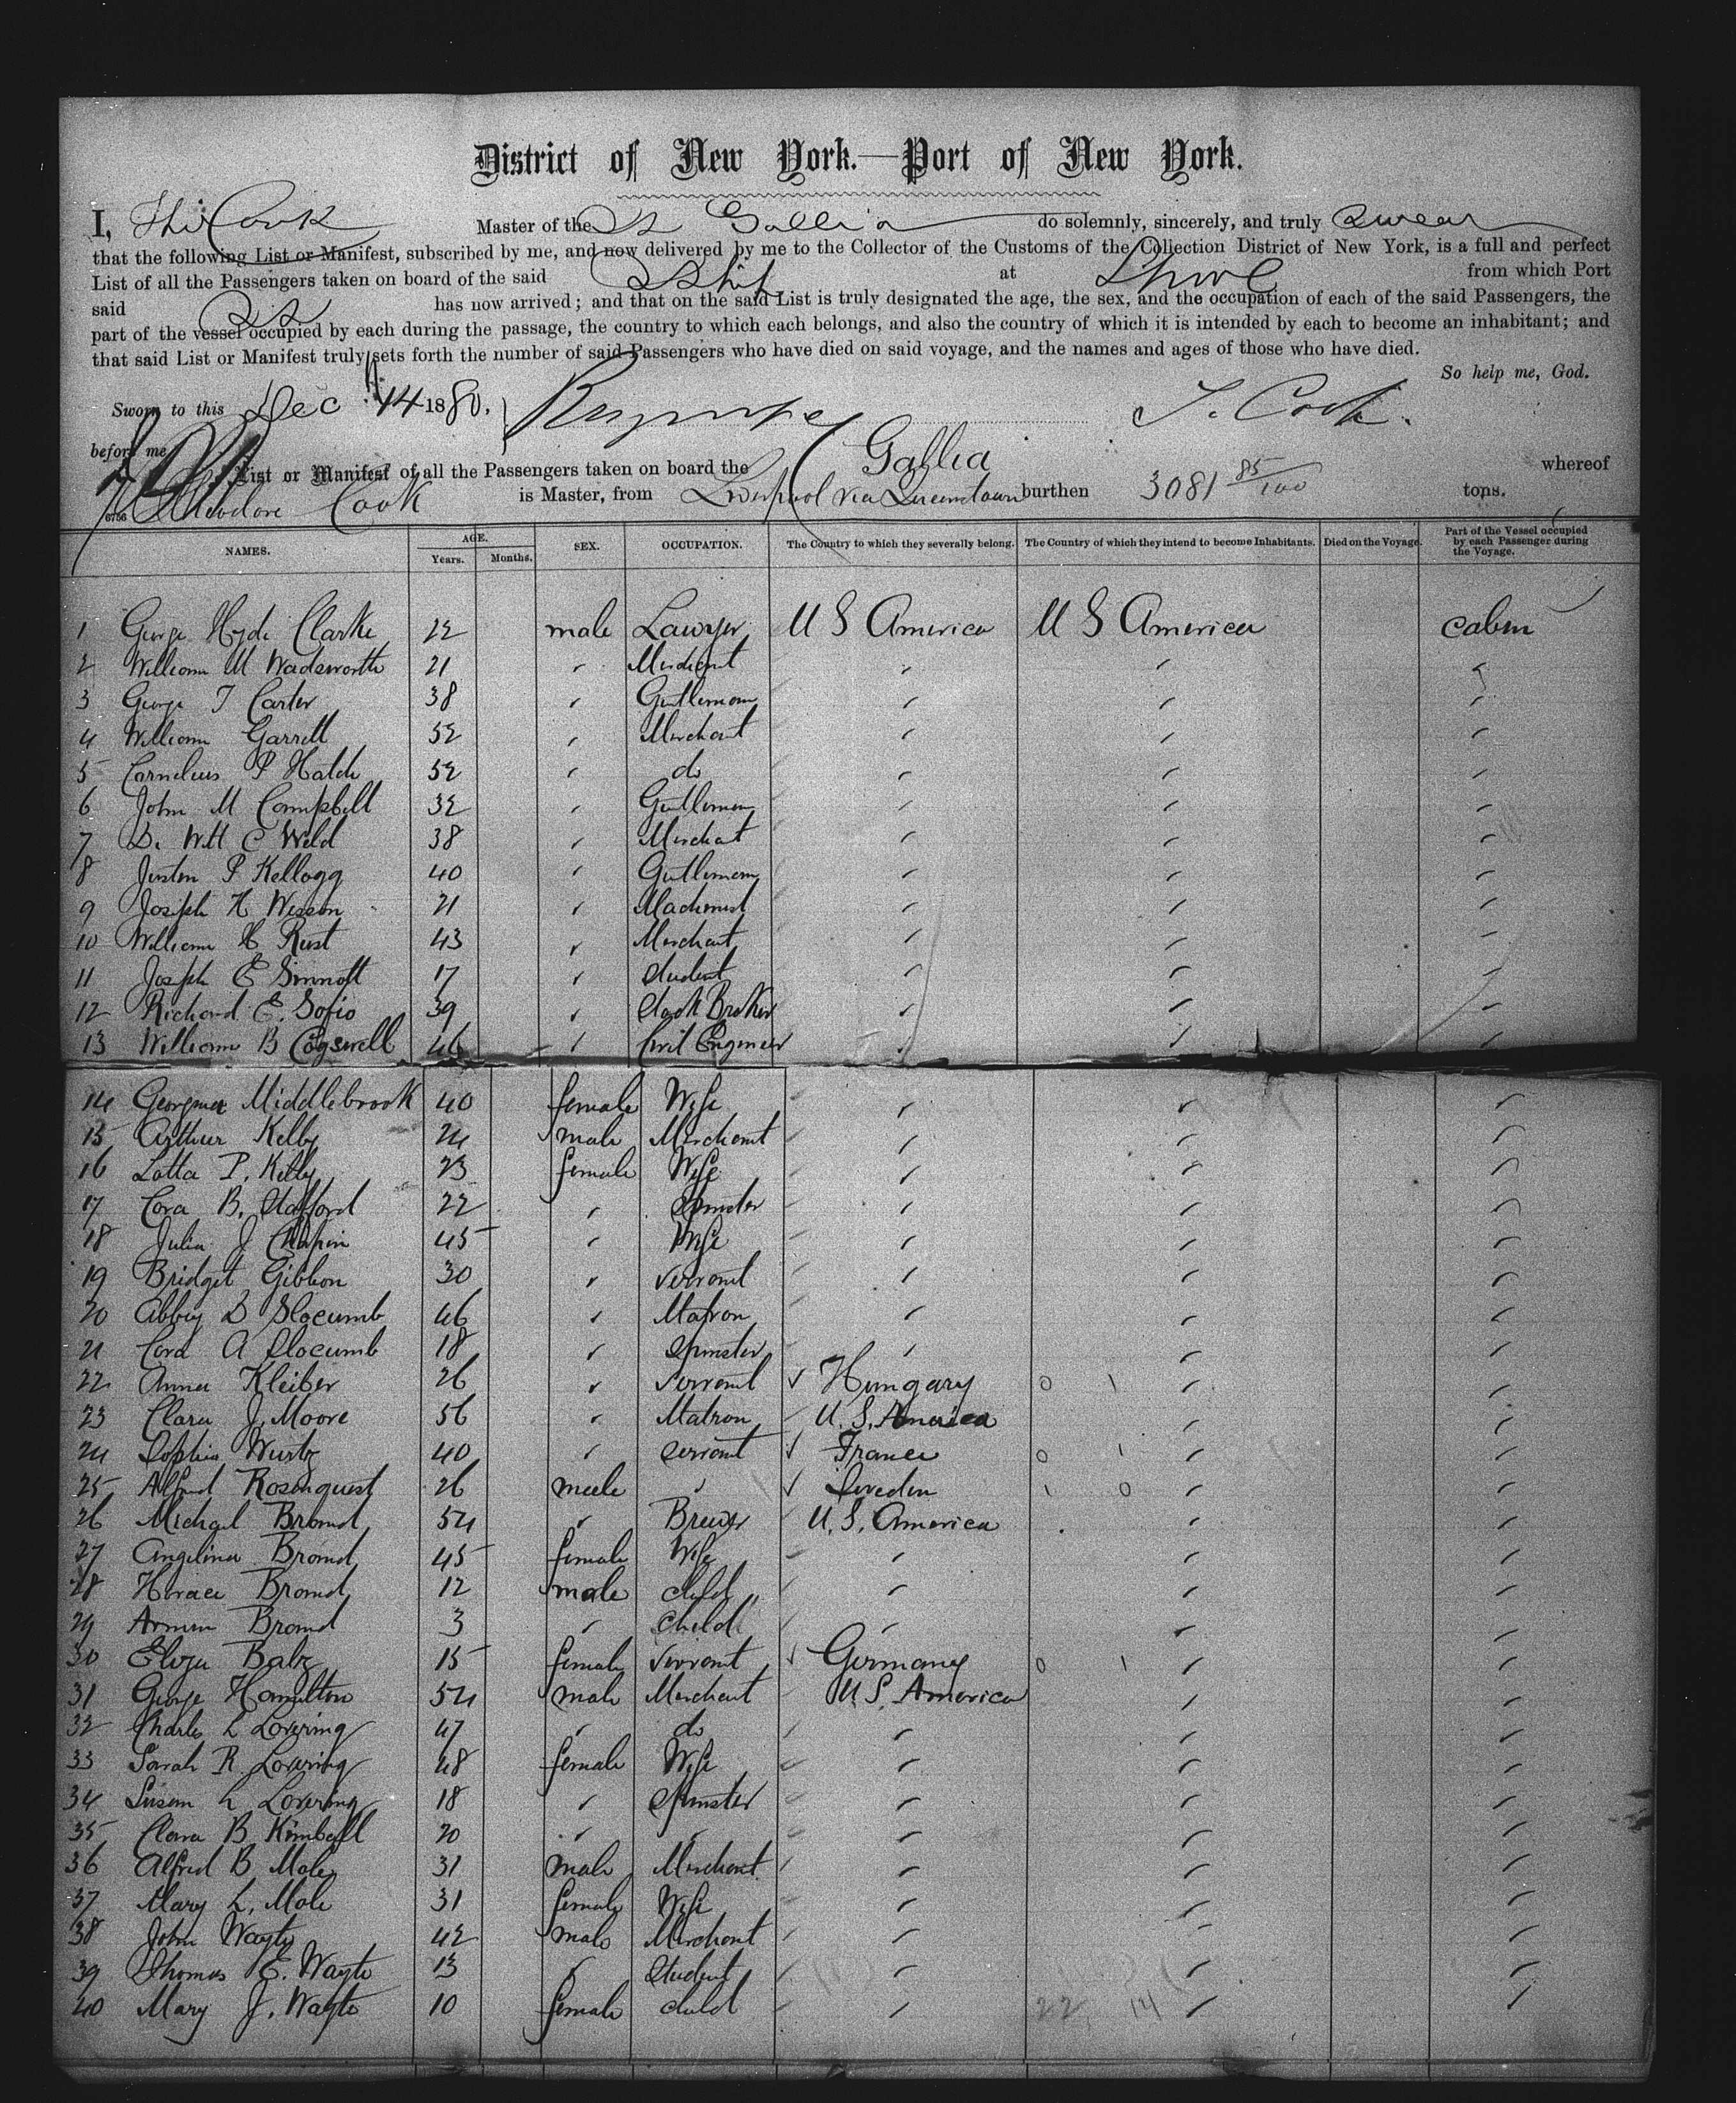 District of New York.—Port of New York.
I, Theo Cook Master of the SS Gallia do solemnly, sincerely, and truly swear
that the following List or Manifest, subscribed by me, and now delivered by me to the Collector of the Customs of the Collection District of New York, is a full and perfect
List of all the Passengers taken on board of the said Ship at L'pool from which Port
said SS has now arrived; and that on the said List is truly designated the age, the sex, and the occupation of each of the said Passengers, the
part of the vessel occupied by each during the passage, the country to which each belongs, and also the country of which it is intended by each to become an inhabitant; and
that said List or Manifest truly sets forth the number of said Passengers who have died on said voyage, and the names and ages of those who have died.
So help me, God.
Sworn to this Dec 14 1880. T. Cook.
before me
List or Manifest of all the Passengers taken on board the Gallia whereof
Theodore Cook is Master, from Liverpool via Queenstown burthen 3081 85/100 tons.
6756
NAMES. AGE. Years. Months. SEX. OCCUPATION. The Country to which they severally belong. The Country of which they intend to become Inhabitants. Died on the Voyage. Part of the Vessel occupied by each Passenger during the Voyage.
1 George Hyde Clarke 22 male Lawyer U S America U S America Cabin
2 William M Wadsworth 21 " Merchant " " "
3 George T Carter 38 " Gentleman " " "
4 William Garrett 52 " Merchant " " "
5 Cornelius P Hatch 52 " do " " "
6 John M Campbell 32 " Gentleman " " "
7 De Witt C Weld 38 " Merchant " " "
8 Justin P Kellogg 40 " Gentleman " " "
9 Joseph H Wesson 21 " Machinist " " "
10 William H Rust 43 " Merchant " " "
11 Joseph E Sinnott 17 " Student " " "
12 Richard E. Sofio 39 " Stock Broker " " "
13 William B Cogswell 46 " Civil Engineer " " "
14 Georgina Middlebrook 40 female Wife " " "
15 Arthur Kelly 24 male Merchant " " "
16 Lotta P. Kelly 23 female Wife " " "
17 Cora B. Stafford 22 " Spinster " " "
18 Julia J Chapin 45 " Wife " " "
19 Bridget Gibbon 30 " Servant " " "
20 Abby D Slocumb 46 " Matron " " "
21 Cora A Slocumb 18 " Spinster " " "
22 Anna Kleiber 26 " Servant ✓ Hungary 0 1 " "
23 Clara J. Moore 56 " Matron U. S. America " "
24 Sophia Wurtz 40 " Servant ✓ France 0 1 " "
25 Alfred Rosenquest 26 male " ✓ Sweden 1 0 " "
26 Michael Brand 54 " Brewer U. S. America " "
27 Angelina Brand 45 female Wife " " "
28 Horace Brand 12 male child " " "
29 Armin Brand 3 " child " " "
30 Eliza Balz 15 female Servant ✓ Germany 0 1 " "
31 George Hamilton 54 male Merchant U S. America " "
32 Charles L Lovering 47 " do " " "
33 Sarah R. Lovering 48 female Wife " " "
34 Susan L Lovering 18 " Spinster " " "
35 Clara B Kimball 20 " " " " "
36 Alfred B Mole 31 male Merchant " " "
37 Mary L. Mole 31 female Wife " " "
38 John Wayte 42 male Merchant " " "
39 Thomas E. Wayte 13 " Student " " "
40 Mary J. Wayte 10 female child " 22 14 " "